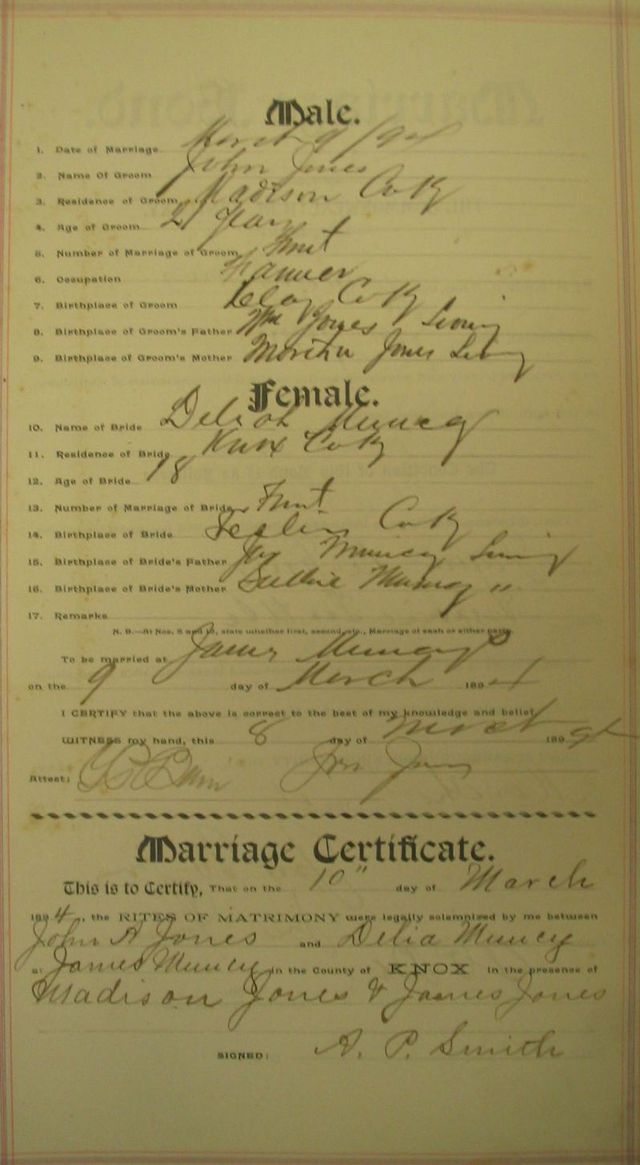 Male.
1. Date of Marriage March 9/94
2. Name Of Groom John Jones
3. Residence of Groom Madison Co Ky
4. Age of Groom 21 Years
5. Number of Marriage of Groom First
6. Occupation Farmer
7. Birthplace of Groom Clay Co Ky
8. Birthplace of Groom's Father Wm Jones Living
9. Birthplace of Groom's Mother Martha Jones Living
Female.
10. Name of Bride Muncy
11. Residence of Bride Knox Co Ky
12. Age of Bride 18
13. Number of Marriage of Bride First
14. Birthplace of Bride Leslie Co Ky
15. Birthplace of Bride's Father Muncy Living
16. Birthplace of Bride's Mother Muncy "
17. Remarks
N. B.—At Nos. 5 and 13, state whether first, second, etc., Marriage of each or either party.
To be married at James Muncy's
on the 9 day of March 1894
I CERTIFY that the above is correct to the best of my knowledge and belief.
WITNESS my hand, this 8 day of March 1894
Attest: Jno Jones
Marriage Certificate.
This is to Certify, That on the 10" day of March
1894, the RITES OF MATRIMONY were legally solemnized by me between
John A Jones and Delia Muncy
at James Muncy in the County of KNOX in the presence of
Madison Jones & James Jones
SIGNED: A. P. Smith